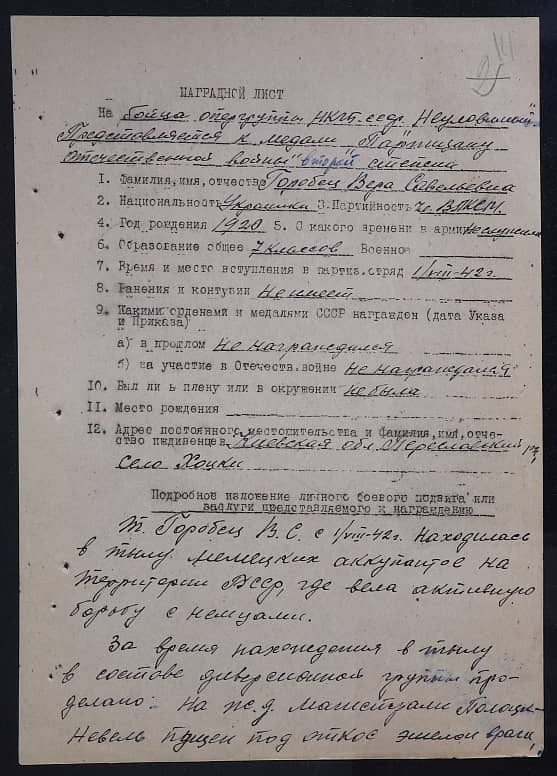 НАГРАДНОЙ ЛИСТ
На бойца опергруппы НКГБ ссср "Неуловимый"
Представляется к медали "Партизану
отечественной войны" второй степени
1. Фамилия,имя,отчество Горобец Вера Савельевна
2. Национальность Украинка 3. Партийность чл. ВЛКСМ.
4. Год рождения 1920 5. С какого времени в армии не служила
6. Образование общее 7 классов Военное
7. Время и место вступления в партиз.отряд 1/VIII-42г.
8. Ранения и контузии Не имеет
9. Какими орденами и медалями СССР награжден (дата Указа
и Приказа)
а) в прошлом не награждался
б) за участие в Отечеств.войне не награждался
10. Был ли в плену или в окружении не была
11. Место рождения
12. Адрес постоянного местожительства и Фамилия,имя,отче-
ство иждивенцев Киевская обл.
село Хоцки
Подробное изложение личного боевого подвига или
заслуги представляемого к награждению
Т. Горобец В.С. с 1/VIII-42г. Находилась
в тылу немецких аккупантов на
территории БССР, где вела активную
борьбу с немцами.
За время нахождения в тылу
в составе диверсионной группы про-
делано: На ж.д. магистрали Полоцк-
Невель пущен под откос эшелон врага,